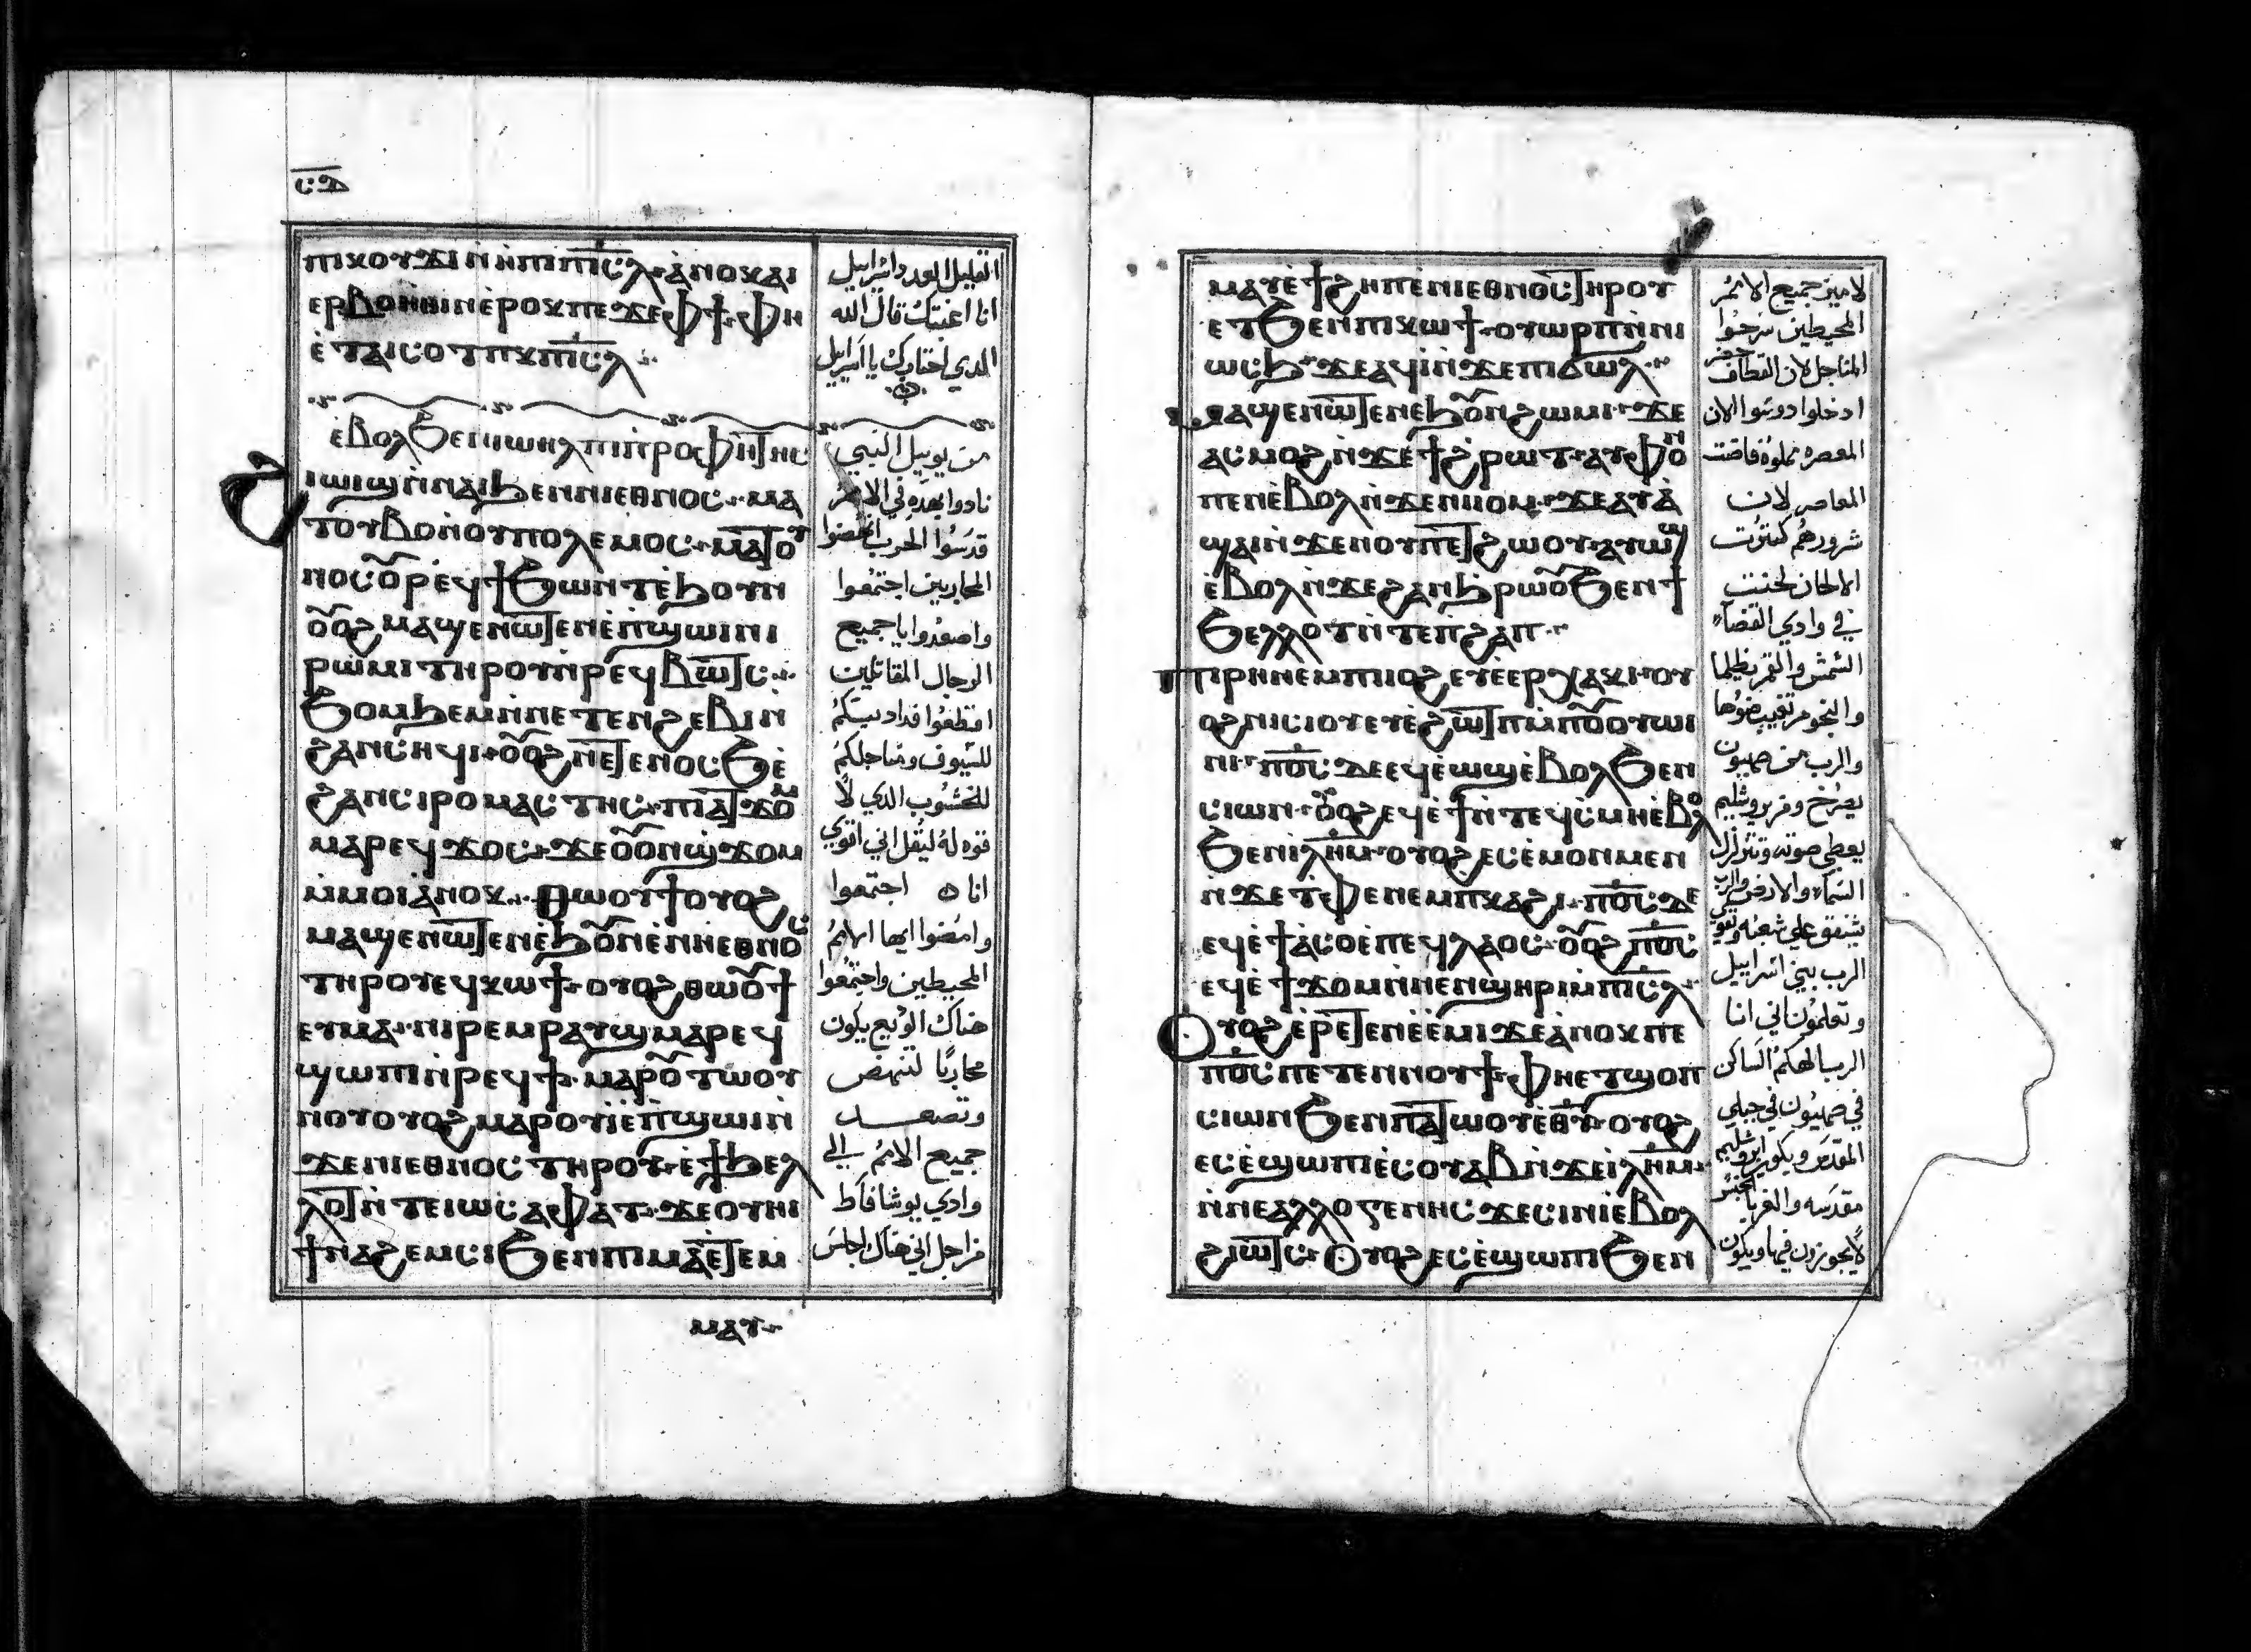 ⲡⲓⲕⲟⲩϫⲓ ⲛ̀ⲧⲉ ⲡⲓⲥ̅ⲗ̅ ⲁⲛⲟⲕ ⲁⲓ
ⲉⲣⲃⲟⲏⲑⲓⲛ ⲉⲣⲟⲕ ⲡⲉϫⲉ ⲫϯ ⲫⲏ
ⲉ̀ⲧⲁⲓⲥⲟⲧⲡⲕ ⲡⲓⲥ̅ⲗ̅
ⲉ̀ⲃⲟⲗϧⲉⲛ ⲓⲱⲏⲗ ⲡⲓⲡⲣⲟⲫⲏⲧⲏⲥ
ϩⲓⲱⲓϣ ⲛ̀ⲛⲁⲓ ϧⲉⲛ ⲛⲓⲉⲑⲛⲟⲥ ⲙⲁ
ⲧⲟⲩⲃⲟ ⲛ̀ⲟⲩⲡⲟⲗⲉⲙⲟⲥ ⲙⲁⲧⲟⲩ
ⲛⲟⲥⲟⲩ ⲣⲉϥϯ ϧⲱⲛⲧ ⲉ̀ϧⲟⲩⲛ
ⲟⲩⲟϩ ⲙⲁϣⲉⲛⲱⲧⲉⲛ ⲉ̀ⲡϣⲱⲓ ⲛⲓ
ⲣⲱⲙⲓ ⲧⲏⲣⲟⲩ ⲛ̀ⲣⲉϥⲃⲱⲧⲥ
ϧⲟⲙϧⲉⲙ ⲛ̀ⲛⲉⲧⲉⲛϩⲉⲃⲓ ⲛ̀
ϩⲁⲛⲥⲏϥⲓ ⲟⲩⲟϩ ⲛⲉⲧⲉⲛⲟⲥϧ ⲉ̀
ϩⲁⲛⲥⲓⲣⲟⲙⲁⲥⲧⲏⲥ ⲡⲓⲁⲧϫⲟⲙ
ⲙⲁⲣⲉϥϫⲟⲥ ϫⲉ ⲟⲩⲟⲛϣϫⲟⲙ
ⲙ̀ⲙⲟⲓ ⲁ̀ⲛⲟⲕ ⲑⲱⲟⲩϯ ⲟⲩⲟϩ
ⲙⲁϣⲉⲛⲱⲧⲉⲛ ⲉ̀ϧⲟⲩⲛ ⲉ̀ⲛⲓⲉⲑⲛⲟⲥ
ⲧⲏⲣⲟⲩ ⲉⲩⲕⲱϯ ⲟⲩⲟϩ ⲑⲱⲟⲩϯ
ⲉⲩⲙⲁ ⲡⲓⲣⲉⲙⲣⲁⲩϣ ⲙⲁⲣⲉϥ
ϣⲱⲡⲓ ⲛ̀ⲣⲉϥϯ ⲙⲁⲣⲟⲩⲧⲱⲟⲩ
ⲛⲟⲩ ⲟⲩⲟϩ ⲙⲁⲣⲟⲩⲓ̀ ⲉ̀ⲡϣⲱⲓ ⲛ̀
ϫⲉ ⲛⲓⲉⲑⲛⲟⲥ ⲧⲏⲣⲟⲩ ⲉ̀ϯϧⲉⲗ
ⲗⲟⲧ ⲛ̀ⲧⲉ ⲓⲱⲥⲁⲫⲁⲧ ϫⲉ ⲟⲩⲏⲓ
ϯⲛⲁϩⲉⲙⲥⲓ ϧⲉⲛ ⲡⲓⲙⲁ ⲉ̀ⲧⲉⲙ
ⲙⲁⲩ
القليل العدد اسراييل
انا اعنتك قال الله
الدي اختارك يا اسراييل
من يوييل النبي
نادوا بهده في الامم
قدسوا الحرب انهضوا
المحاربين اجتمعوا
واصعدوا يا جميع
الرجال المقاتلين
اقطعوا فدادينكم
للسيوف ومناجلكم
للخشوب الدي لا
قوه له ليقل اني اقوي
انا اجتمعوا
وامضوا ايها الامم
المحيطين واجتمعوا
هناك الوديع يكون
محاربًا لتنهض
وتصعد
جميع الامم الي
وادي يوشافاط
من اجل اني هناك اجلس
ⲙⲁⲩ ⲉ̀ϯϩⲏⲡ ⲉ̀ⲛⲓⲉⲑⲛⲟⲥ ⲧⲏⲣⲟⲩ
ⲉⲧϧⲉⲛ ⲡⲓⲕⲱϯ ⲟⲩⲱⲣⲡ ⲛ̀ⲛⲓ
ⲱⲥϧ ϫⲉ ⲁϥⲓ̀ ⲛ̀ϫⲉ ⲡⲓϭⲱⲗ
ⲙⲁϣⲉⲛⲱⲧⲉⲛ ⲉ̀ϧⲟⲩⲛ ϩⲱⲙⲓ ϫⲉ
ⲁⲥⲙⲟϩ ⲛ̀ϫⲉ ϯϩⲣⲱⲧ ⲁⲩⲫⲟⲛ
ⲡⲉⲛ ⲉ̀ⲃⲟⲗ ⲛ̀ϫⲉ ⲛⲓⲟⲙ ϫⲉ ⲁⲩⲁ̀
ϣⲁⲓ ⲛ̀ϫⲉ ⲛⲟⲩⲡⲉⲧϩⲱⲟⲩ ⲁⲩⲱϣ
ⲉ̀ⲃⲟⲗ ⲛ̀ϫⲉ ϩⲁⲛϧⲣⲱⲟⲩ ϧⲉⲛ ϯ
ϧⲉⲗⲗⲟⲧ ⲛ̀ⲧⲉ ⲡϩⲁⲡ
ⲡⲓⲣⲏ ⲛⲉⲙ ⲡⲓⲓⲟϩ ⲉⲩⲉ̀ⲉⲣⲭⲁⲕⲓ ⲟⲩ
ⲟϩ ⲛⲓⲥⲓⲟⲩ ⲉⲩⲉ̀ϩⲱⲧⲡ ⲙ̀ⲡⲟⲩⲟⲩⲱⲓ
ⲛⲓ ⲡ̅ⲟ̅ⲥ̅ ⲇⲉ ⲉϥⲉ̀ⲱϣ ⲉ̀ⲃⲟⲗϧⲉⲛ
ⲥⲓⲱⲛ ⲟⲩⲟϩ ⲉϥⲉ̀ϯ ⲛ̀ⲧⲉϥⲥⲙⲏ ⲉ̀ⲃⲟⲗ
ϧⲉⲛ ⲓⲗ̅ⲏ̅ⲙ̅ ⲟⲩⲟϩ ⲉⲥⲉ̀ⲙⲟⲛⲙⲉⲛ
ⲛ̀ϫⲉ ⲧⲫⲉ ⲛⲉⲙ ⲡⲕⲁϩⲓ ⲡ̅ⲟ̅ⲥ̅ ⲇⲉ
ⲉϥⲉ̀ϯⲁ̀ⲥⲟ ⲉ̀ⲡⲉϥⲗⲁⲟⲥ ⲟⲩⲟϩ ⲡ̅ⲟ̅ⲥ̅
ⲉϥⲉ̀ϯϫⲟⲙ ⲛ̀ⲛⲉⲛϣⲏⲣⲓ ⲙ̀ⲡⲓⲥ̅ⲗ̅
ⲟⲩⲟϩ ⲉ̀ⲣⲉⲧⲉⲛⲉ̀ⲉ̀ⲙⲓ ϫⲉ ⲁ̀ⲛⲟⲕ ⲡⲉ
ⲡ̅ⲟ̅ⲥ̅ ⲡⲉⲧⲉⲛⲛⲟⲩϯ ⲫⲏⲉⲧϣⲟⲡ
ⲥⲓⲱⲛ ϧⲉⲛ ⲡⲁⲧⲱⲟⲩ ⲉ̅ⲑ̅ⲩ̅ ⲟⲩⲟϩ
ⲉⲥⲉ̀ϣⲱⲡⲓ ⲉⲥⲟⲩⲁⲃ ⲛ̀ϫⲉ ⲓⲗ̅ⲏ̅ⲙ̅
ⲛ̀ⲛⲉ ⲁⲗⲗⲟⲅⲉⲛⲏⲥ ϫⲉ ⲥⲓⲛⲓ ⲉ̀ⲃⲟⲗ
ϩⲓⲱⲧⲥ ⲟⲩⲟϩ ⲉⲥⲉ̀ϣⲱⲡⲓ ϧⲉⲛ
لادين جميع الامم
المحيطين سرحوا
المناجل لان القطاف حضر
ادخلوا دوسوا الان
المعصره مملوه فاضت
المعاصر لان
شرورهم كترت
الالحان لحنت
في وادي القضاء
الشمش والقمر يظلما
والنجوم تغيب ضوها
والرب من صهيون
يصرخ ومن يروشليم
يعطي صوته وتتزلزل
السماء والارض والرب
يشفق علي شعبه ويقوي
الرب بني اسراييل
وتعلمون اني انا
الرب الهكم الساكن
في صهيون في جبلي
المقدس ويكون يروشليم
مقدسه والغربا
لا يجوزون فيها ويكون